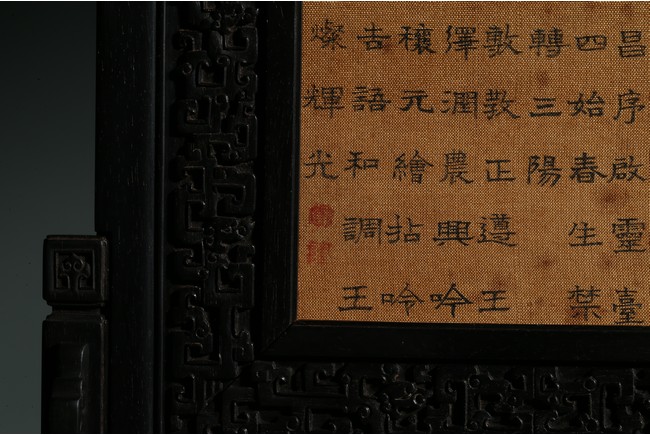 昌序啟靈臺
四始春生禁
轉三陽
敷教正遵王
澤潤農興吟
穰元繪拈吟
吉語和調王
燦輝光